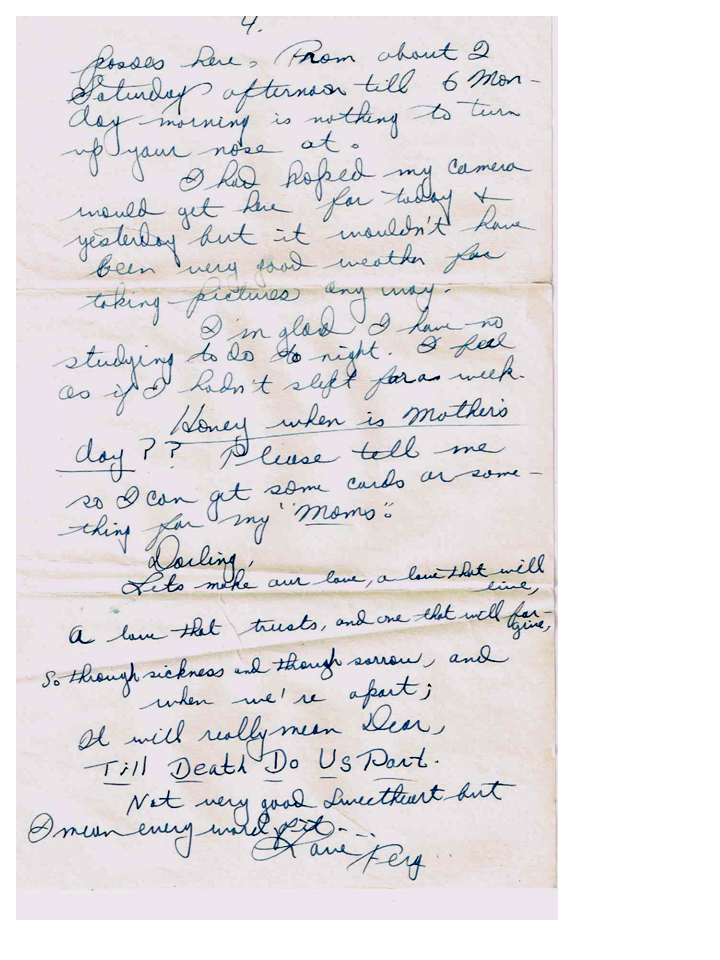 4.
passes here. From about 2
Saturday afternoon till 6 Mon-
day morning is nothing to turn
up your nose at.
I had hoped my camera
would get here for today &
yesterday but it wouldn't have
been very good weather for
taking pictures any way.
I'm glad I have no
studying to do to night. I feel
as if I hadn't slept for a week.
Honey when is Mother's
day?? Please tell me
so I can get some cards or some-
thing for my "Moms".
Darling,
Lets make our love, a love that will
live,
A love that trusts, and one that will for-
give,
So through sickness and though sorrow, and
when we're apart;
It will really mean Dear,
Till Death Do Us Part.
Not very good Sweetheart but
I mean every word of it....
Love
Ferg